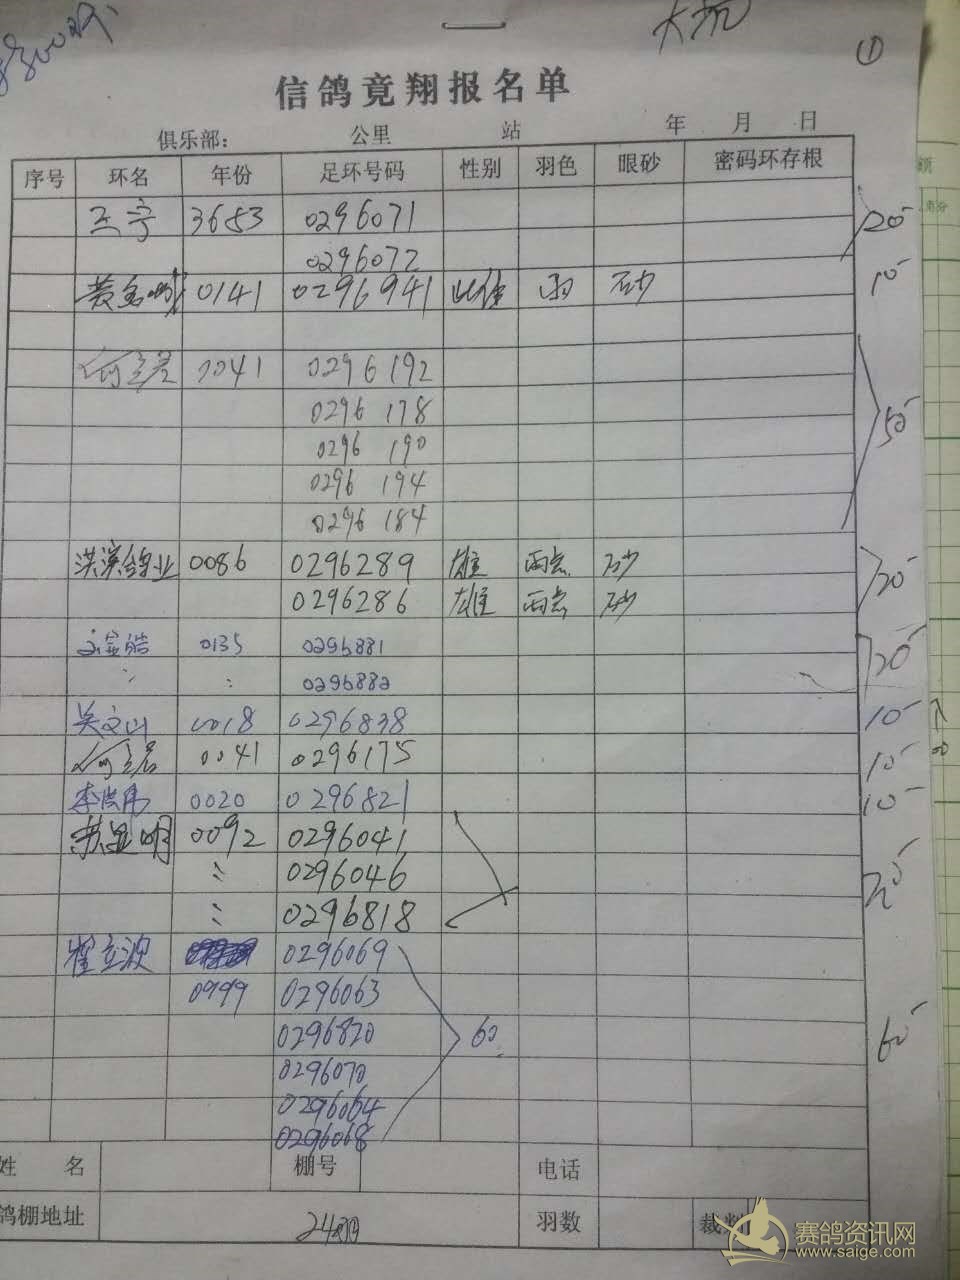 ①
信鸽竟翔报名单
俱乐部： 公里 站 年 月 日
序号 环名 年份 足环号码 性别 羽色 眼砂 密码环存根
王宁 3653 0296071 20-
0296072
0141 0296941 砂 10-
0041 0296192
0296 178
0296 190 50-
0296 194
0296 184
洪滨鸽业 0086 0296289 雄 雨点 砂 20-
0296286 雄 雨点 砂
0135 0296881 20-
0296882
吴文山 0018 0296838 10-
0041 0296175 10-
李洪伟 0020 0296821 10-
0092 0296041
0296046
0296818
翟立波 0296069
0999 0296063
0296820 60 60-
0296070
0296064
0296068
姓 名 棚号 电话
鸽棚地址 24羽 羽数 裁判
赛鸽资讯网
www.saige.com